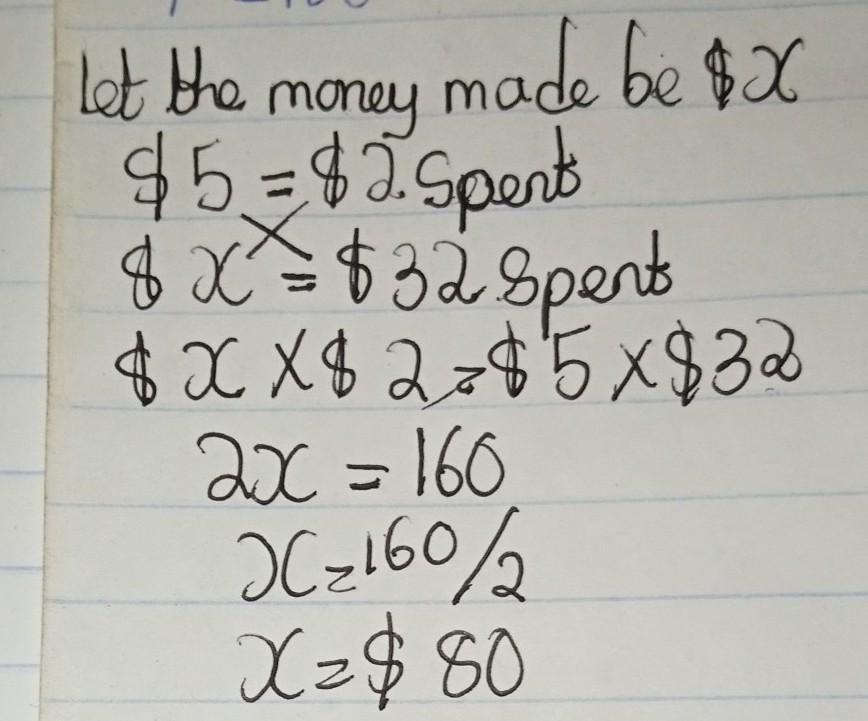 let the money made be $x
$5 = $2 Spent
$x = $32 Spent
$x × $2 = $5 × $32
2x = 160
x = 160/2
x = $80